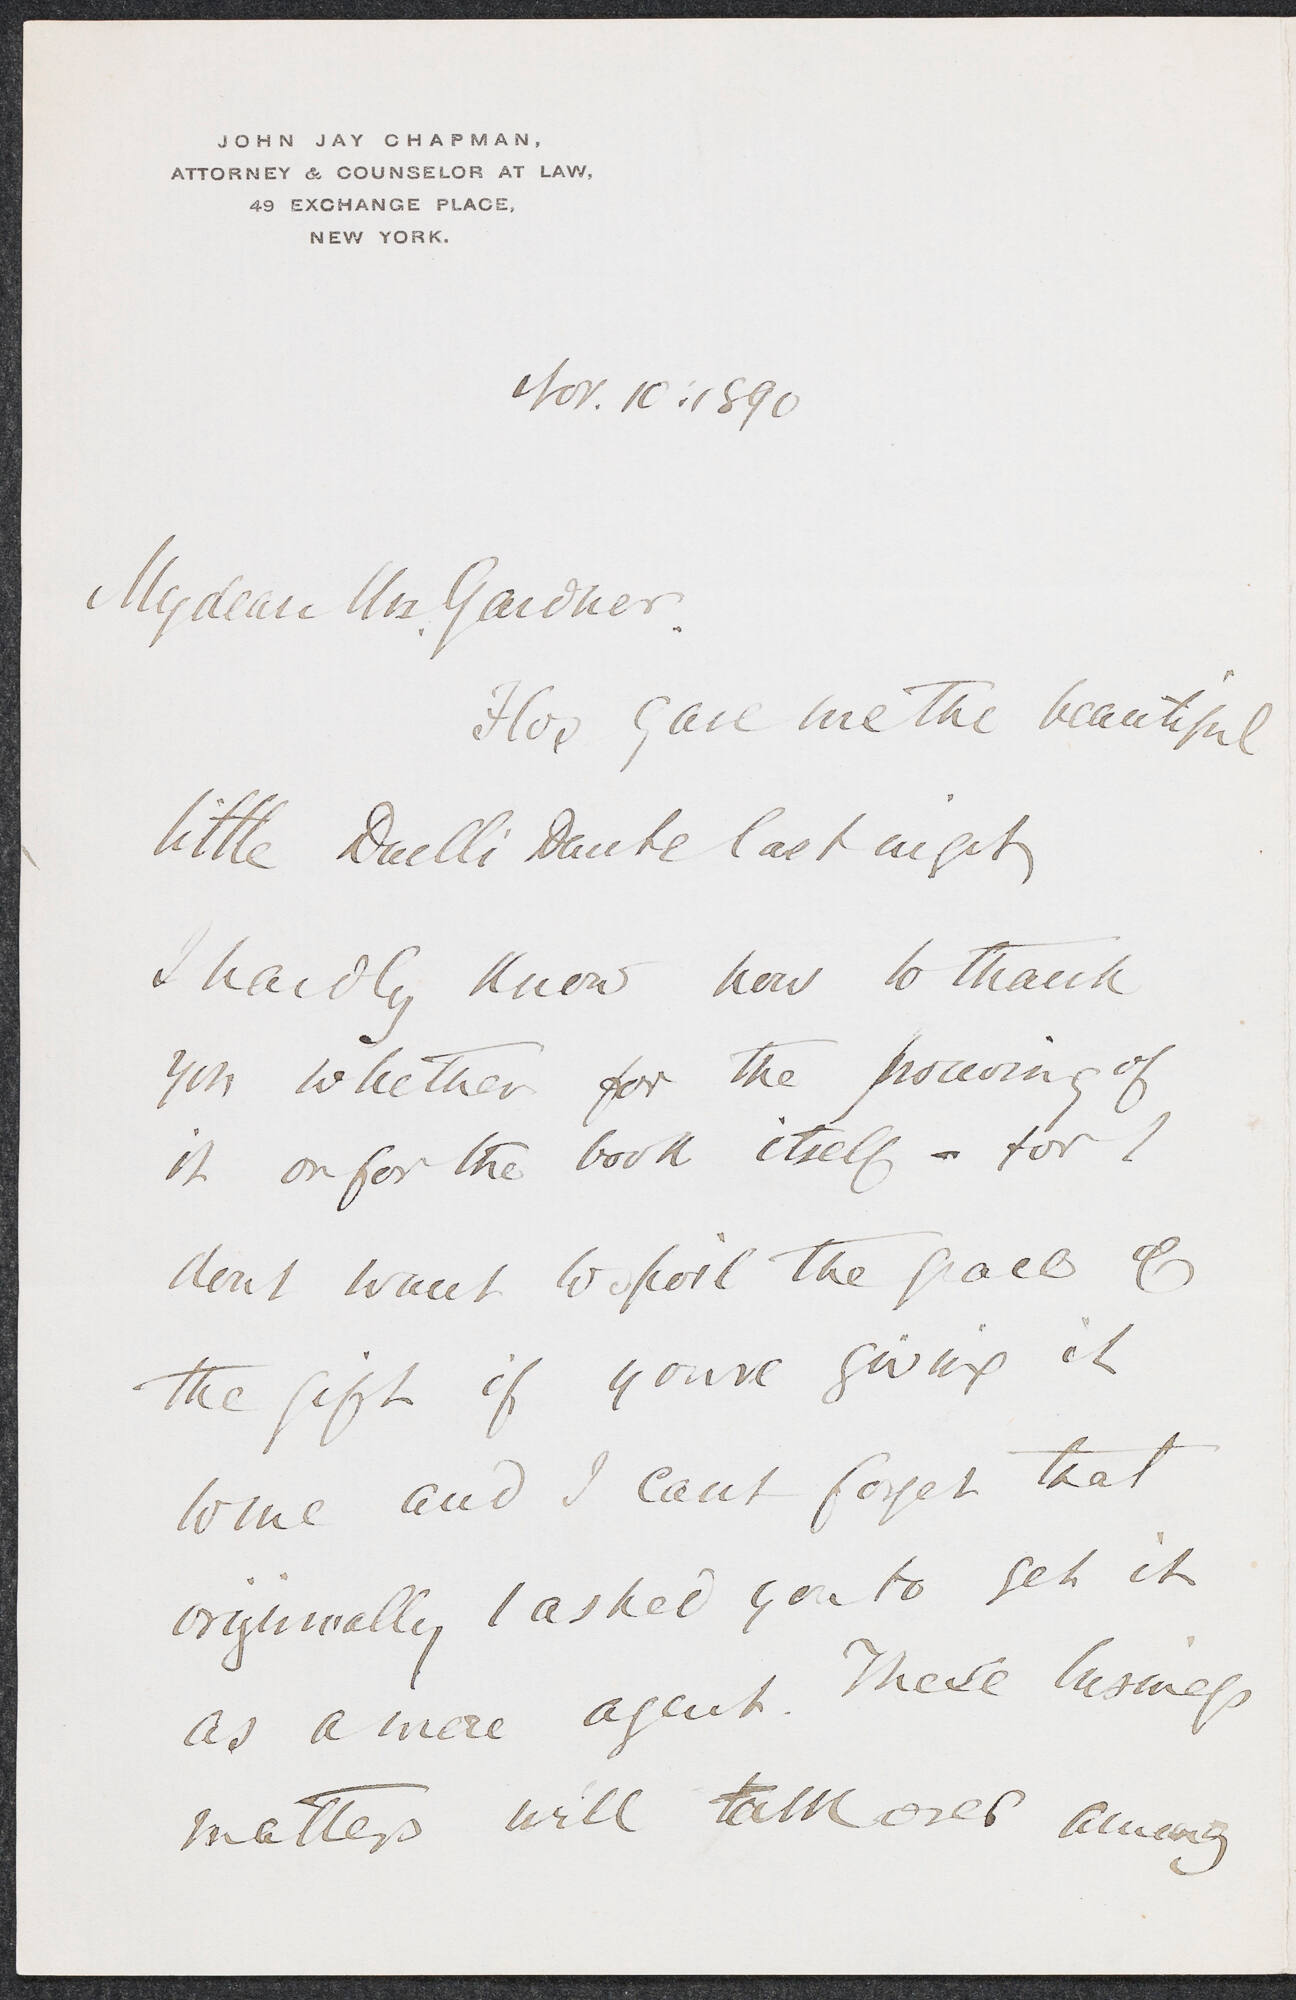 JOHN JAY CHAPMAN,
ATTORNEY & COUNSELOR AT LAW,
49 EXCHANGE PLACE,
NEW YORK.
Nov. 10 : 1890
My dear Mrs. Gardner.
gave me the beautiful
little Duelli Dante last night
I hardly know how to thank
you whether for the procuring of
it or for the book itself - for I
dont want to spoil the grace of
the gift if youre giving it
to me and I cant forget that
originally I asked you to get it
as a mere agent. These business
matters will talk over among